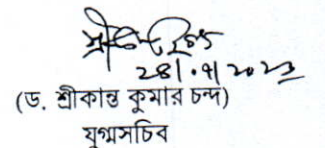 ২৪|০৭|২০২৩
(ড. শ্রীকান্ত কুমার চন্দ)
যুগ্মসচিব